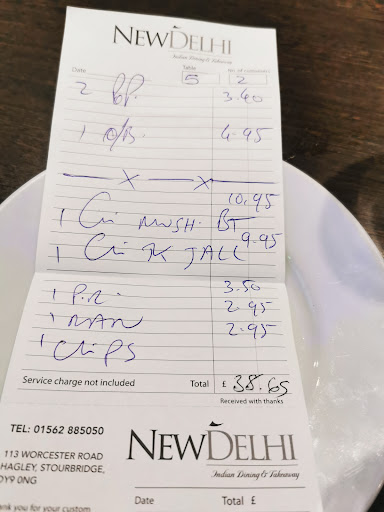 NEWDELHI
Indian Dining & Takeaway
Date Table No. of customers
5 2
2 P.P. 3.40
1 O/B. 4.95
x x
1 Chi MUSH. BT 10.95
1 Chi TK JALL 9.95
1 P.R. 3.50
1 NAN 2.95
1 CHIPS 2.95
Service charge not included Total £ 38.65
Received with thanks
TEL: 01562 885050
113 WORCESTER ROAD
HAGLEY, STOURBRIDGE,
DY9 0NG
ank you for your custom
NEWDELHI
Indian Dining & Takeaway
Date Total £